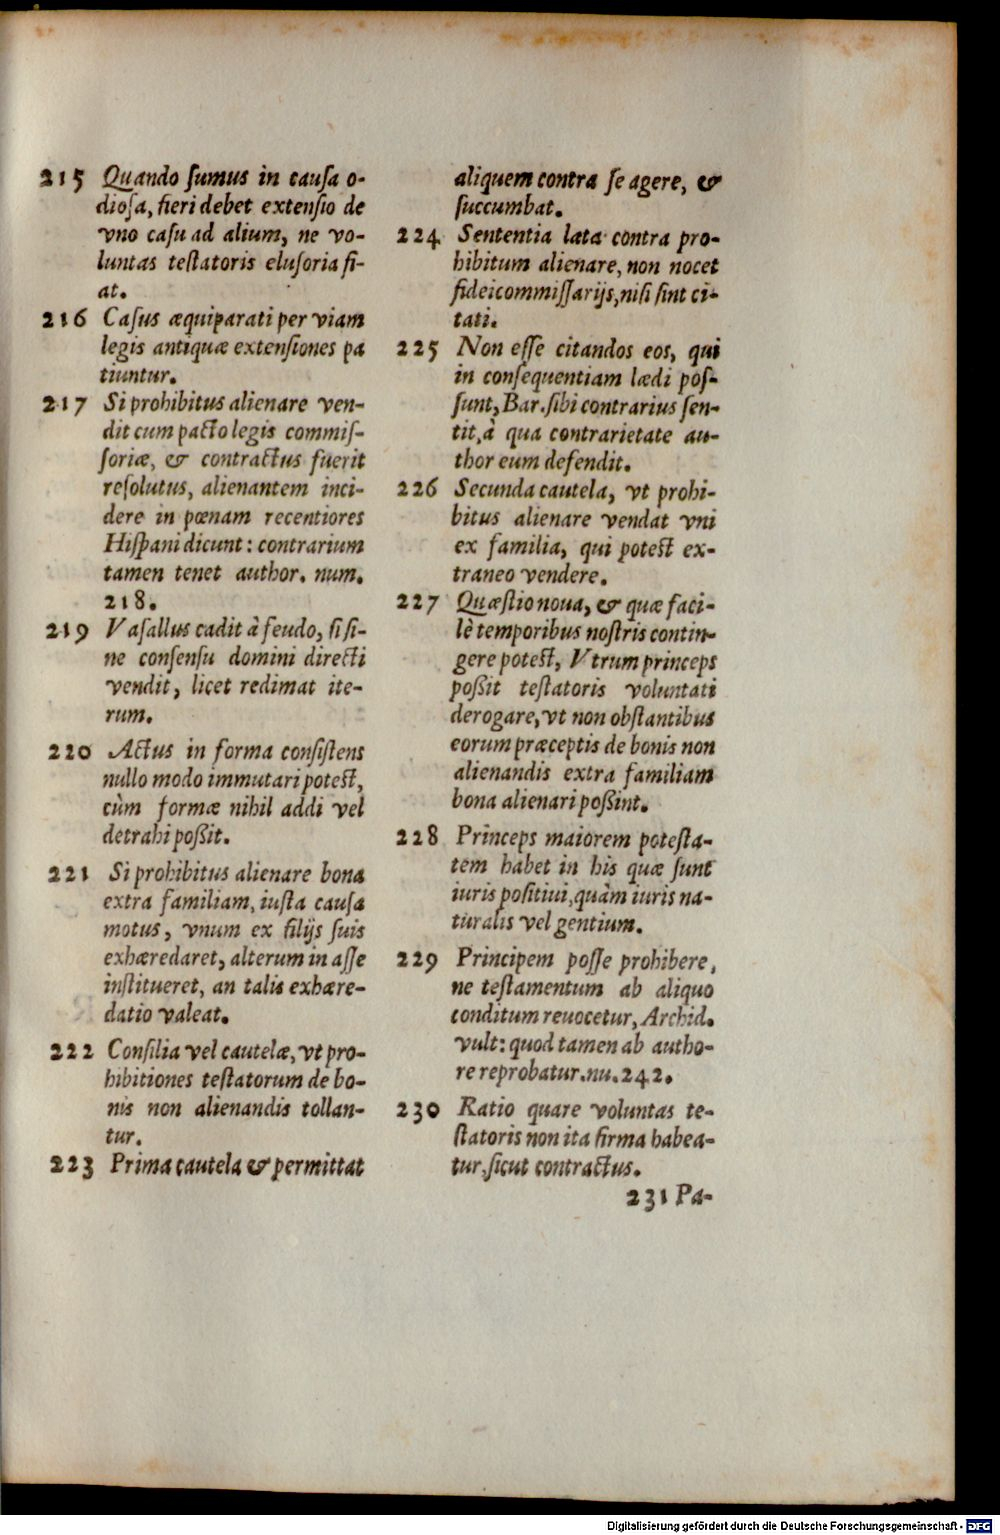 215 Quando ſumus in cauſa o-
dioſa, fieri debet extenſio de
vno caſu ad alium, ne vo-
luntas teſtatoris eluſoria fi-
at.
216 Caſus æquiparati per viam
legis antiquæ extenſiones pa
tiuntur.
217 Si prohibitus alienare ven-
dit cum pacto legis commiſ-
ſoriæ, & contractus fuerit
reſolutus, alienantem inci-
dere in pœnam recentiores
Hiſpani dicunt: contrarium
tamen tenet author. num.
218.
219 Vaſallus cadit à feudo, ſi ſi-
ne conſenſu domini directi
vendit, licet redimat ite-
rum.
220 Actus in forma conſiſtens
nullo modo immutari poteſt,
cùm formæ nihil addi vel
detrahi poßit.
221 Si prohibitus alienare bona
extra familiam, iuſta cauſa
motus, vnum ex filijs ſuis
exhæredaret, alterum in aſſe
inſtitueret, an talis exhære-
datio valeat.
222 Conſilia vel cautelæ, vt pro-
hibitiones teſtatorum de bo-
nis non alienandis tollan-
tur.
223 Prima cautela & permittat
aliquem contra ſe agere, &
ſuccumbat.
224 Sententia lata contra pro-
hibitum alienare, non nocet
fideicommiſſarijs, niſi ſint ci-
tati.
225 Non eſſe citandos eos, qui
in conſequentiam lædi poſ-
ſunt, Bar. ſibi contrarius ſen-
tit, à qua contrarietate au-
thor eum defendit.
226 Secunda cautela, vt prohi-
bitus alienare vendat vni
ex familia, qui poteſt ex-
traneo vendere.
227 Quæſtio noua, & quæ faci-
lè temporibus noſtris contin-
gere poteſt, Vtrum princeps
poßit teſtatoris voluntati
derogare, vt non obſtantibus
eorum præceptis de bonis non
alienandis extra familiam
bona alienari poßint.
228 Princeps maiorem poteſta-
tem habet in his quæ ſunt
iuris poſitiui, quàm iuris na-
turalis vel gentium.
229 Principem poſſe prohibere,
ne teſtamentum ab aliquo
conditum reuocetur, Archid.
vult: quod tamen ab autho-
re reprobatur. nu. 242.
230 Ratio quare voluntas te-
ſtatoris non ita firma habea-
tur, ſicut contractus.
231 Pa-
Digitalisierung gefördert durch die Deutsche Forschungsgemeinschaft - DFG